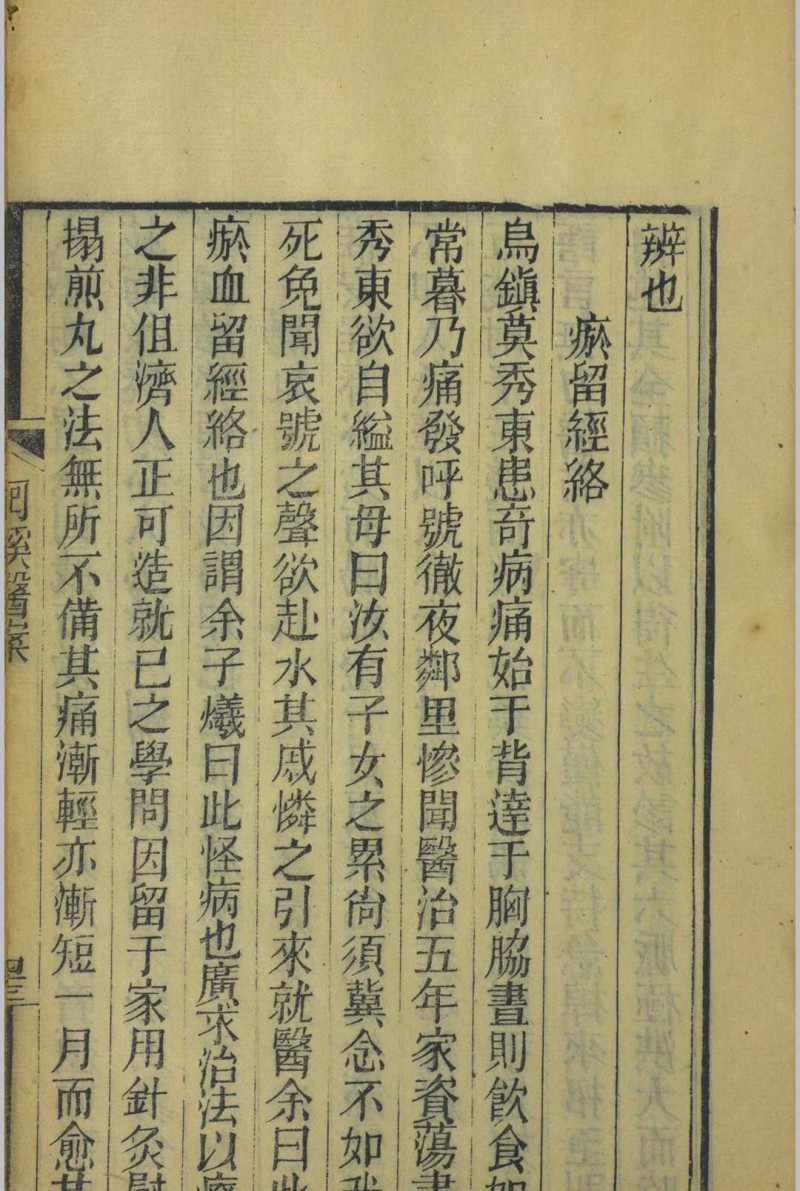 辨也
瘀留經絡
烏鎮莫秀東患奇病痛始于背達于胸脇晝則飲食如
常暮乃痛發呼號徹夜鄰里慘聞醫治五年家資蕩
秀東欲自縊其母曰汝有子女之累尙須冀念不如
死免聞哀號之聲欲赴水其戚憐之引來就醫余曰此
瘀血留經絡也因謂余子爔曰此怪病也廣求治法以
之非但濟人正可造就已之學問因留于家用針灸
搨煎丸之法無所不備其痛漸輕亦漸短一月而愈其
洄溪醫案